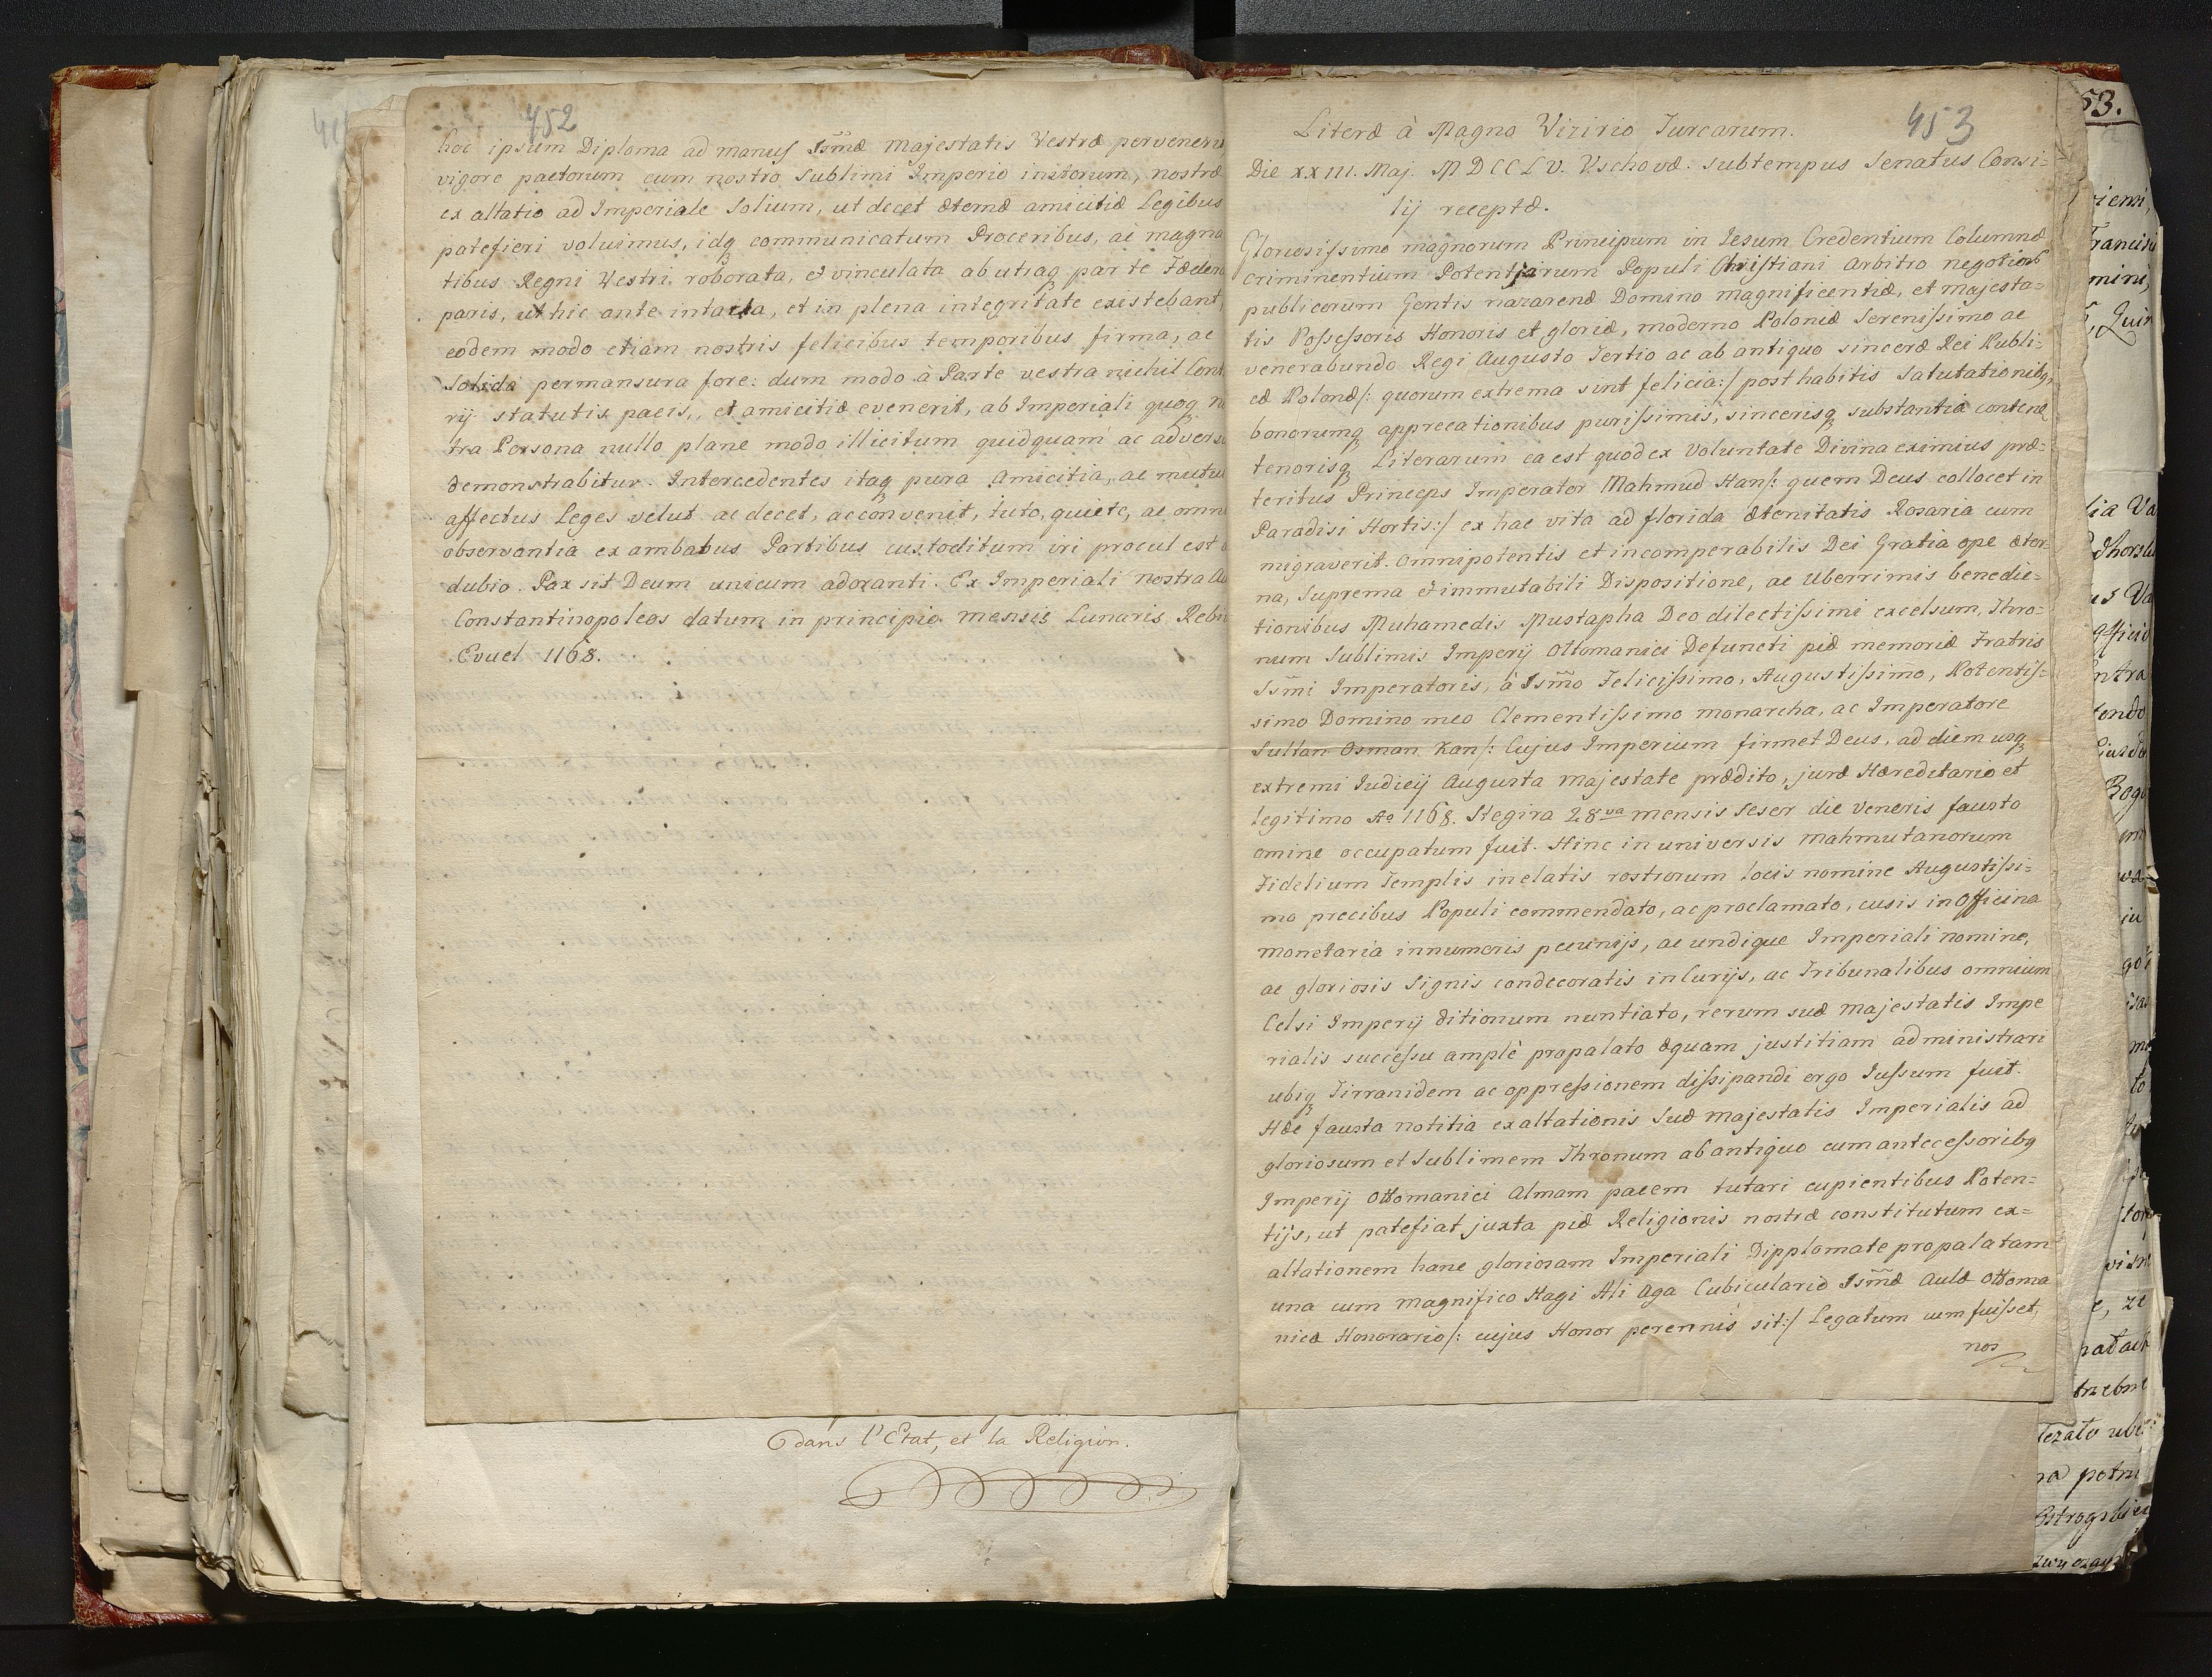 452
hoc ipsum Diploma ad manus Ssmæ Majestatis Vestræ pervenerit
vigore pactorum cum nostro Sublimi Imperio initorum, nostræ
ex altatio ad Imperiale Solium, ut decet æternæ amicitiæ Legibus
patefieri voluimus, idq communicatum Proceribus, ac magna
tibus Regni Vestri roborata, et vinculata ab utraq parte Fæder
paris, ut hic ante intacta, et in plena integritate existebant,
eodem modo etiam nostris felicibus temporibus firma, ac
Solida permansura fore: dum modo à Parte vestra nichil Cont
rij statutis pacis, et amicitiæ evenerit, ab Imperiali quoq n
tra Persona nullo plane modo illicitum quidquam ac advers
demonstrabitur. Intercedentes itaq pura Amicitia, ac mutu
affectus Leges velut ac decet, ac convenit, tuto, quiete, ac omn
observantia ex ambabus Partibus custoditum iri procul est
dubio. Pax sit Deum unicum adoranti. Ex Imperiali nostra Au
Constantinopoleos datum in principio mensis Lunaris Rebi
Evuel 1168.
dans l'Etat, et la Religion.
453
Literæ à Magno Vizirio Turcarum.
Die XXIII. Maj. MDCCLV. Vschovæ. Subtempus Senatus Consi=
lij receptæ.
Gloriosissimo magnorum Principum in Jesum Credentium Columnæ
Criminentium Potentiarum Populi Christiani Arbitro negotiorũ
publicorum Gentis nazarenæ Domino magnificentiæ, et majesta=
tis Possessoris Honoris et gloriæ, moderno Poloniæ Serenissimo ac
venerabundo Regi Augusto Tertio ac ab antiquo sinceræ Rei Publi=
cæ Polonæ/: quorum extrema sint felicia:/ post habitis Salutationibq,
bonorumq apprecationibus purissimis, sincerisq substantia contenæ
tenorisq Literarum ea est quod ex Voluntate Divina eximius præ=
teritus Princeps Imperator Mahmud Han/: quem Deus collocet in
Paradisi Hortis:/ ex hac vita ad florida æternitatis Rosaria cum
migraverit. Omnipotentis et incomperabilis Dei Gratia ope æter=
na, Suprema et immutabili Dispositione, ac Uberrimis benedic=
tionibus Muhamedis Mustapha Deo dilectissimi excelsum, Thro=
num Sublimis Imperij Ottomanici Defuncti piæ memoriæ Fratris
Ssmi Imperatoris, à Ssmo Felicissimo, Augustissimo, Potentis=
simo Domino meo Clementissimo monarcha, ac Imperatore
Sultan Osman Kan/: Cujus Imperium firmet Deus, ad diem usq
extremi Judicij Augusta Majestate prædito, juræ Hæreditario et
legitimo Ao 1168. Hegira 28va mensis Sefer die Veneris fausto
omine occupatum fuit. Hinc in universis Mahmutanorum
Fidelium Templis in elatis rostrorum locis nomine Augustissi=
mo precibus Populi commendato, ac proclamato, cusis in Officina
monetaria innumeris pecunijs, ac undique Imperiali nomine,
ac gloriosis Signis condecoratis in Curijs, ac Tribunalibus omnium
Celsi Imperij ditionum nuntiato, rerum suæ Majestatis Impe
rialis successu amplè propalato æquam justitiam administrari
ubiq Tirranidem ac oppressionem dissipandi ergo Jussum fuit.
Hæc fausta notitia exaltationis Suæ Majestatis Imperialis ad
gloriosum et Sublimem Thronum ab antiquo cum antecessoribq
Imperij Ottomanici Almam pacem tutari cupientibus Poten=
tijs, ut patefiat juxta piæ Religionis nostræ constitutum ex=
altationem hanc gloriosam Imperiali Dipplomate propalatam
una cum Magnifico Hagi Ali Aga Cubiculario Ssmæ Aulæ Ottoma
nicæ Honorario/: cujus Honor perennis sit:/ Legatum cum fuisset,
nos